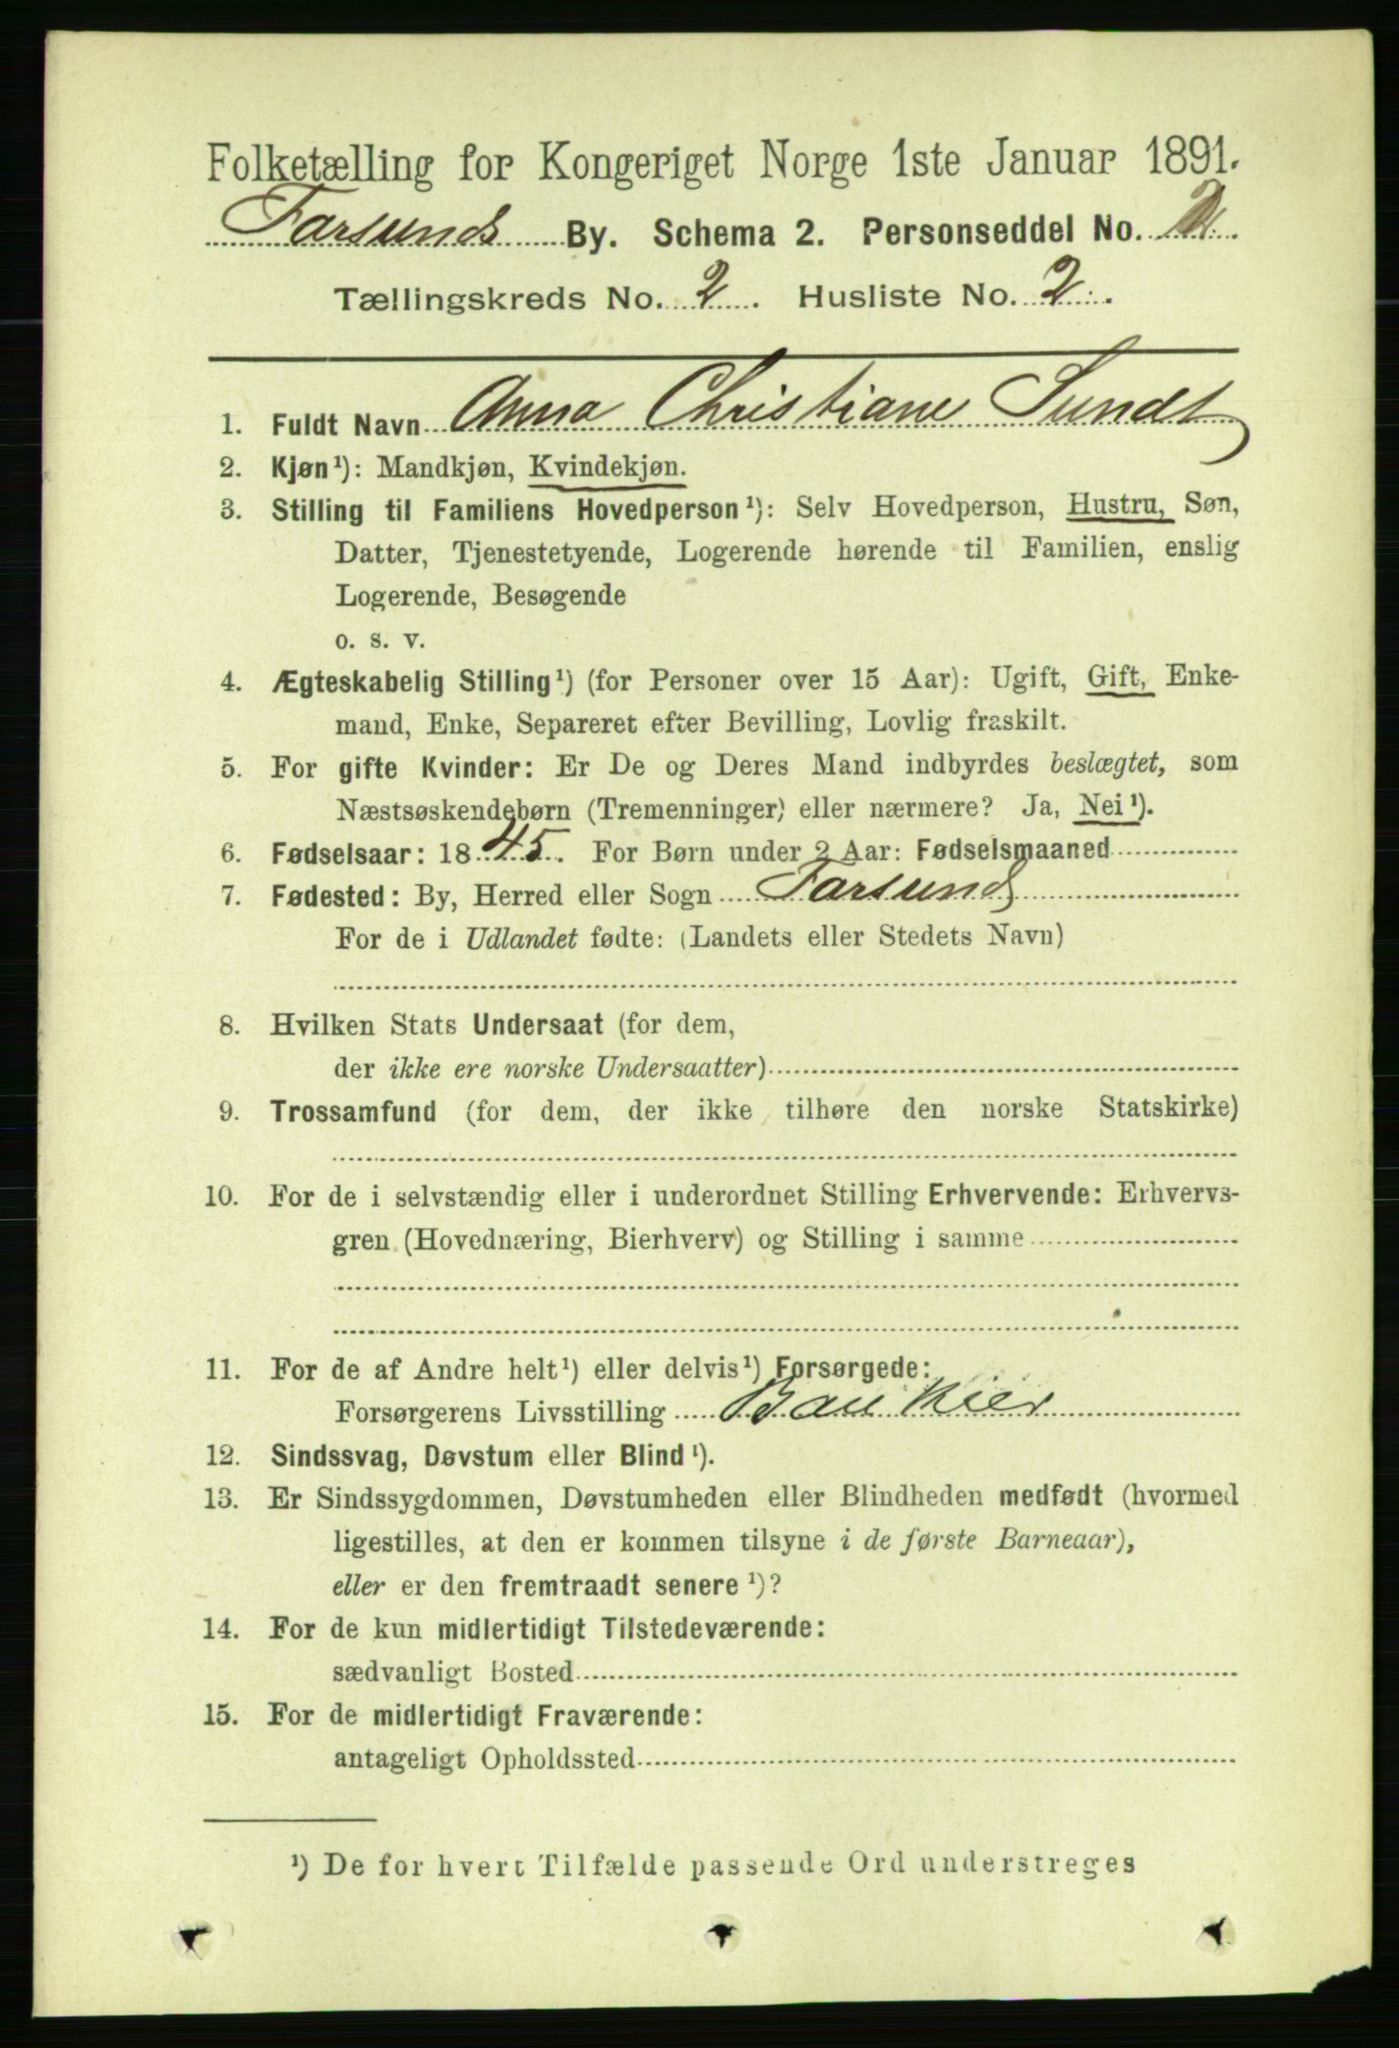 Folketælling for Kongeriget Norge 1ste Januar 1891.
Farsunds By. Schema 2. Personseddel No.
Tællingskreds No. 2. Husliste No. 2.
1. Fuldt Navn Anna Christiane Sundt
2. Kjøn¹): Mandkjøn, Kvindekjøn.
3. Stilling til Familiens Hovedperson¹): Selv Hovedperson, Hustru, Søn,
Datter, Tjenestetyende, Logerende hørende til Familien, enslig
Logerende, Besøgende
o. s. v.
4. Ægteskabelig Stilling¹) (for Personer over 15 Aar): Ugift, Gift, Enke-
mand, Enke, Separeret efter Bevilling, Lovlig fraskilt.
5. For gifte Kvinder: Er De og Deres Mand indbyrdes beslægtet, som
Næstsøskendebørn (Tremenninger) eller nærmere? Ja, Nei¹).
6. Fødselsaar: 1845. For Børn under 2 Aar: Fødselsmaaned
7. Fødested: By, Herred eller Sogn Farsund
For de i Udlandet fødte: (Landets eller Stedets Navn)
8. Hvilken Stats Undersaat (for dem,
der ikke ere norske Undersaatter)
9. Trossamfund (for dem, der ikke tilhøre den norske Statskirke)
10. For de i selvstændig eller i underordnet Stilling Erhvervende: Erhvervs-
gren (Hovednæring, Bierhverv) og Stilling i samme
11. For de af Andre helt¹) eller delvis¹) Forsørgede:
Forsørgerens Livsstilling Bankier
12. Sindssvag, Døvstum eller Blind¹).
13. Er Sindssygdommen, Døvstumheden eller Blindheden medfødt (hvormed
ligestilles, at den er kommen tilsyne i de første Barneaar),
eller er den fremtraadt senere¹)?
14. For de kun midlertidigt Tilstedeværende:
sædvanligt Bosted
15. For de midlertidigt Fraværende:
antageligt Opholdssted
¹) De for hvert Tilfælde passende Ord understreges